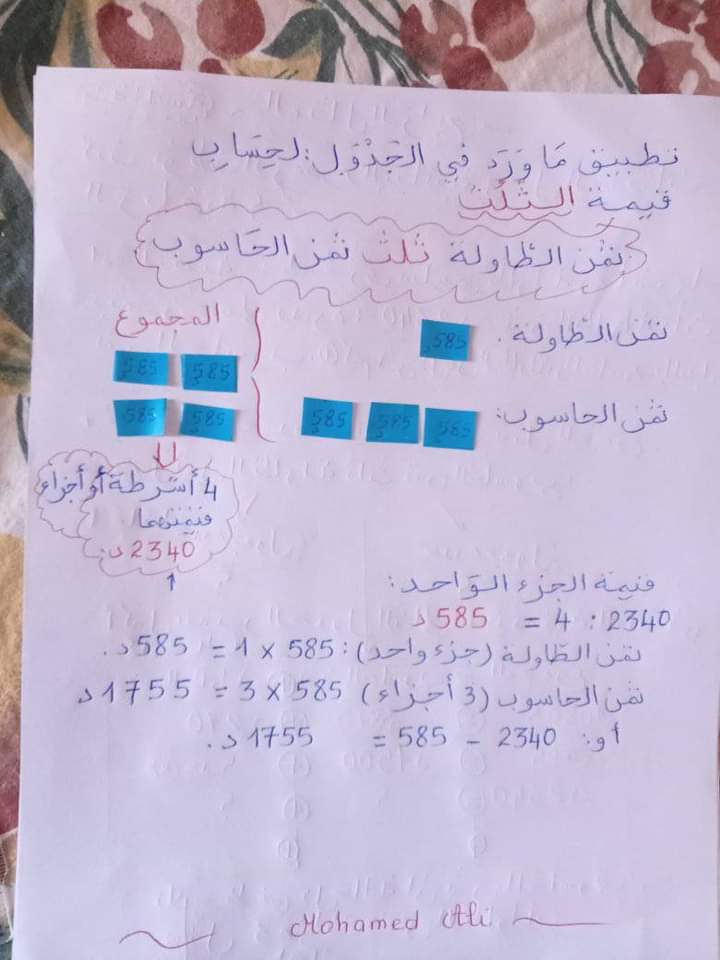 تطبيق مَا وَرَدَ فِي الجَدْوَلِ: لِحِسَابِ
قيمة الثُّلُث
ثمن الطّاولة ثلث ثمن الحَاسوب
ثمن الطّاولة.
585
المجموع
585 585
585 585
ثمن الحاسوب:
585 585 585
4 أشرطة أو أجزاء
قيمتهما
2340 د.
قيمة الجزء الواحد:
2340 : 4 = 585 د.
ثمن الطّاولة (جزء واحد): 585 × 1 = 585 د.
ثمن الحاسوب (3 أجزاء) 585 × 3 = 1755 د
أو: 2340 - 585 = 1755 د.
Mohamed Ali